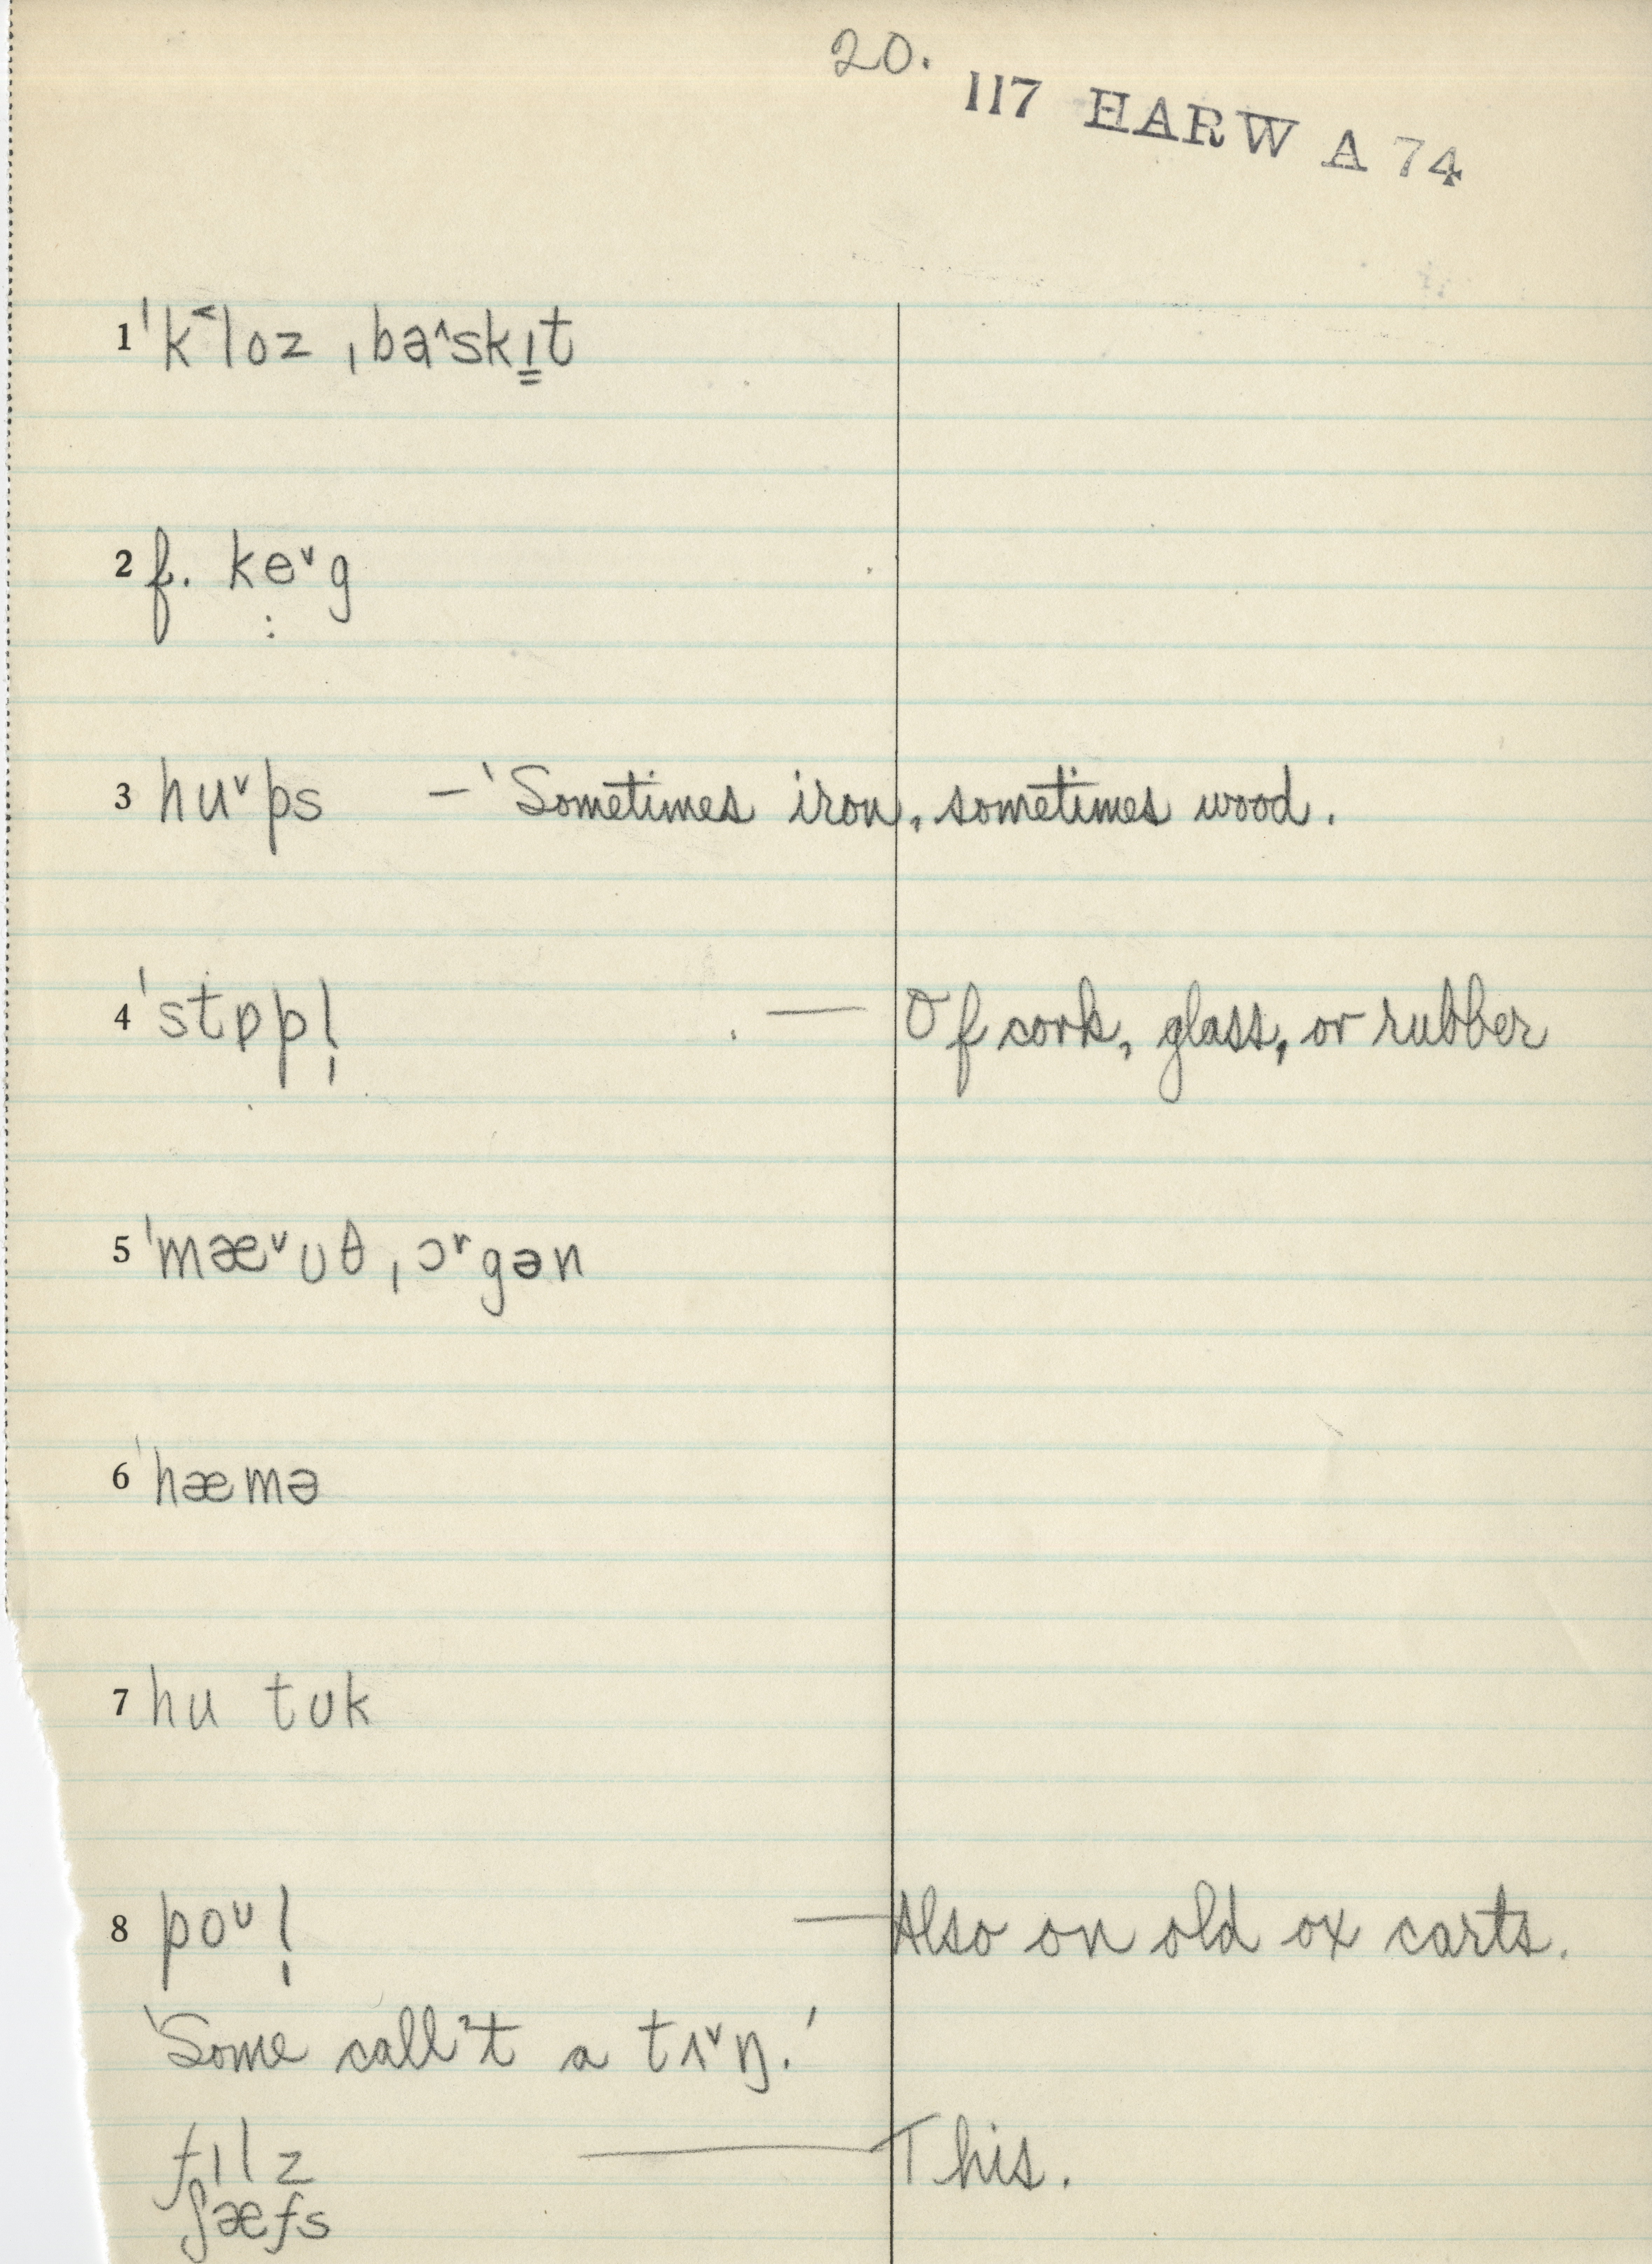 20.
117 HARW A 74
1 ˈk˂loz ˌba^skɪ̳t
2 f. keᵛg
:
3 huᵛps – 'Sometimes iron, sometimes wood.
4 ˈstɒpl̩ — Of cork, glass, or rubber
5 ˈmæᵛʊθ ˌɔʳgən
6 ˈhæmə
7 hu tʊk
8 poᵛl̩ — Also on old ox carts.
'Some call't a tɪᵛŋ.'
fɪlz — This.
ʃæfs